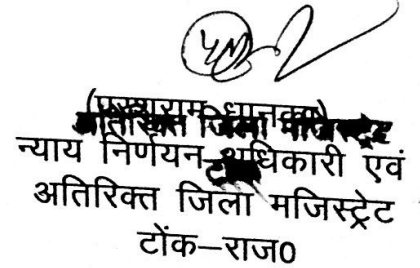 (परशुराम धानका)
अतिरिक्त जिला मजिस्ट्रेट
न्याय निर्णयन अधिकारी एवं
अतिरिक्त जिला मजिस्ट्रेट
टोंक–राज0